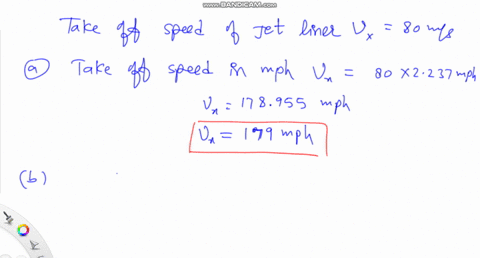 WWW.BANDICAM.COM
Take off speed of Jet liner Vx = 80 m/s
(a) Take off speed in mph Vx = 80 × 2.237 mph
Vx = 178.955 mph
Vx = 179 mph
(b)